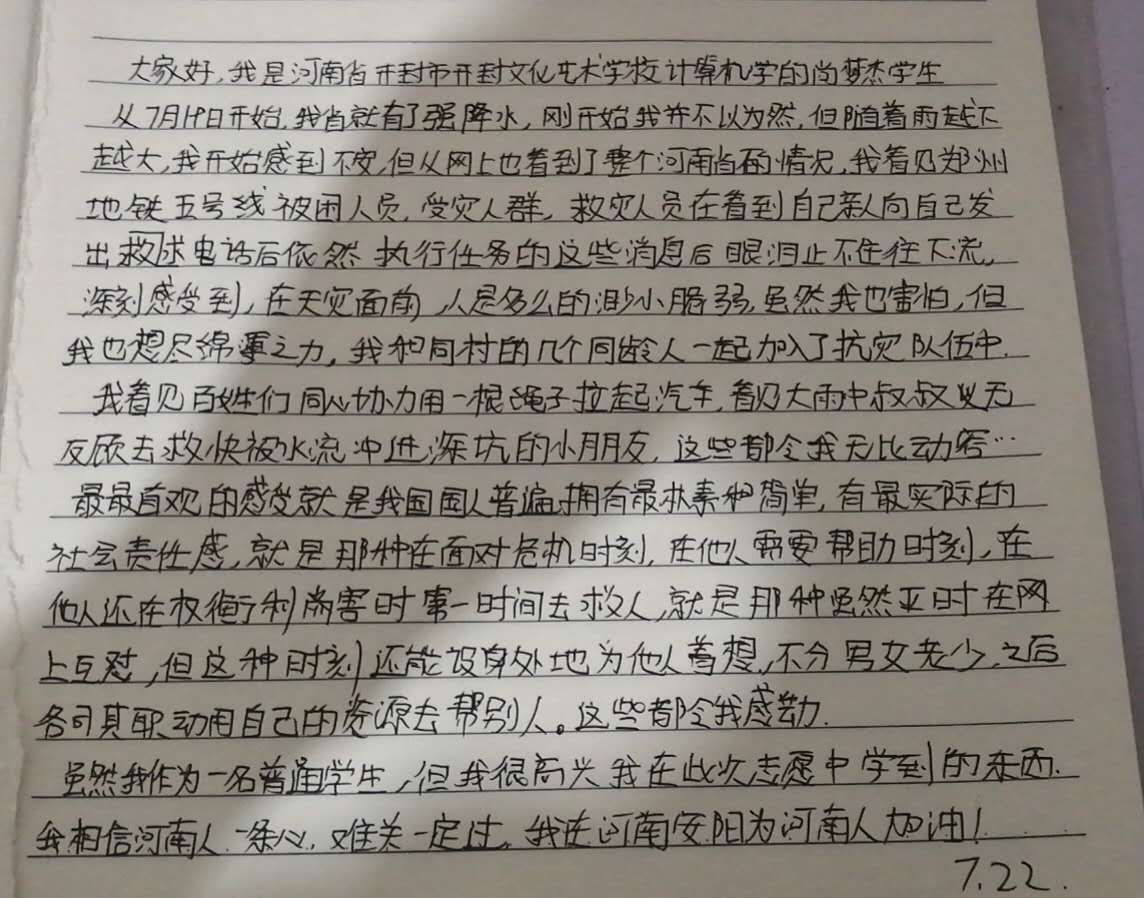 大家好，我是河南省开封市开封文化艺术学校计算机学的尚梦杰学生
从7月19日开始，我省就有了强降水，刚开始我并不以为然，但随着雨越下
越大，我开始感到不安，但从网上也看到了整个河南省的情况，我看见郑州
地铁五号线被困人员，受灾人群，救灾人员在看到自己亲人向自己发
出救求电话后依然执行任务的这些消息后眼泪止不住往下流，
深刻感受到，在天灾面前，人是多么的渺小脆弱，虽然我也害怕，但
我也想尽绵薄之力，我和同村的几个同龄人一起加入了抗灾队伍中.
我看见百姓们同心协力用一根绳子拉起汽车，看见大雨中叔叔义无
反顾去救快被水流冲进深坑的小朋友，这些都令我无比动容…
最最直观的感受就是我国国人普遍拥有最朴素和简单，有最实际的
社会责任感，就是那种在面对危机时刻，在他人需要帮助时刻，在
他人还在权衡利害时第一时间去救人，就是那种虽然平时在网
上互怼，但这种时刻还能设身处地为他人着想，不分男女老少，之后
各司其职动用自己的资源去帮别人。这些都令我感动.
虽然我作为一名普通学生，但我很高兴我在此次志愿中学到的东西.
我相信河南人一条心，难关一定过，我在河南安阳为河南人加油！
7.22.